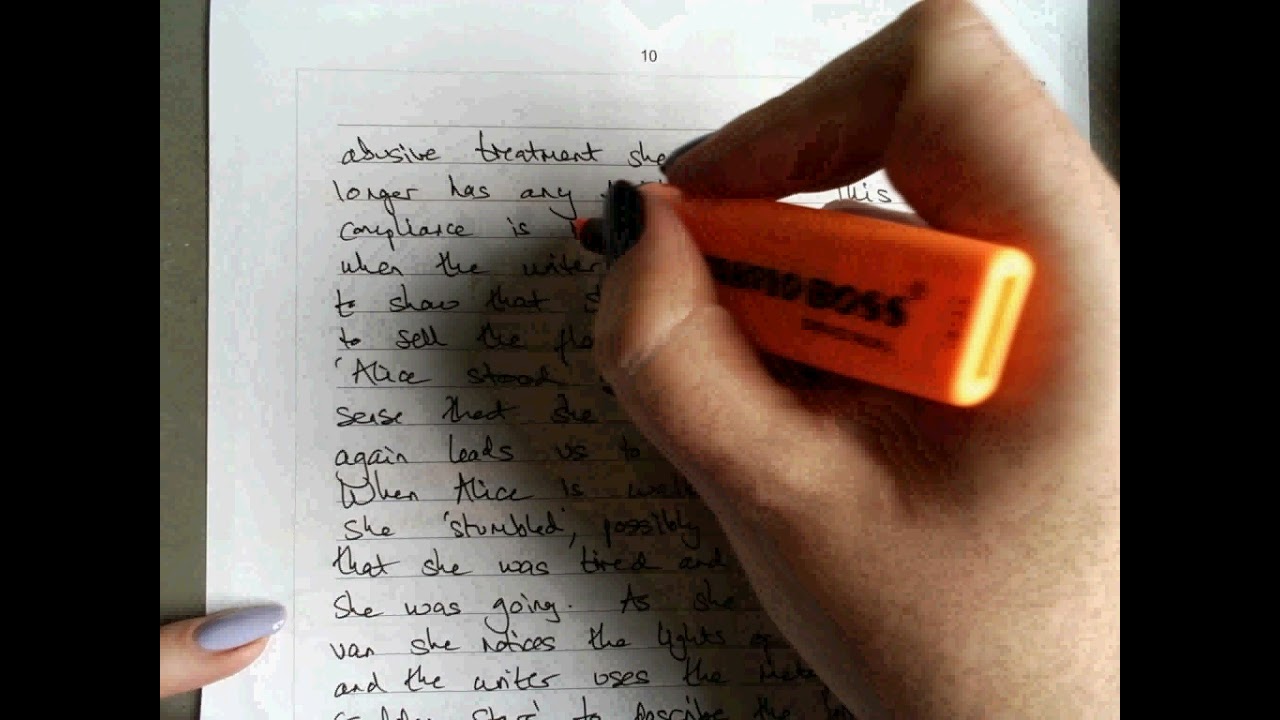 10
abusive treatment she
longer has any This
compliance is
when the writer
to show that
to sell the
'Alice stood
sense that she
again leads us to
When Alice is
She 'stumbled', possibly
that she was tired and
She was going. As she
van she notices the lights
and the writer uses the
to describe the
BOSS